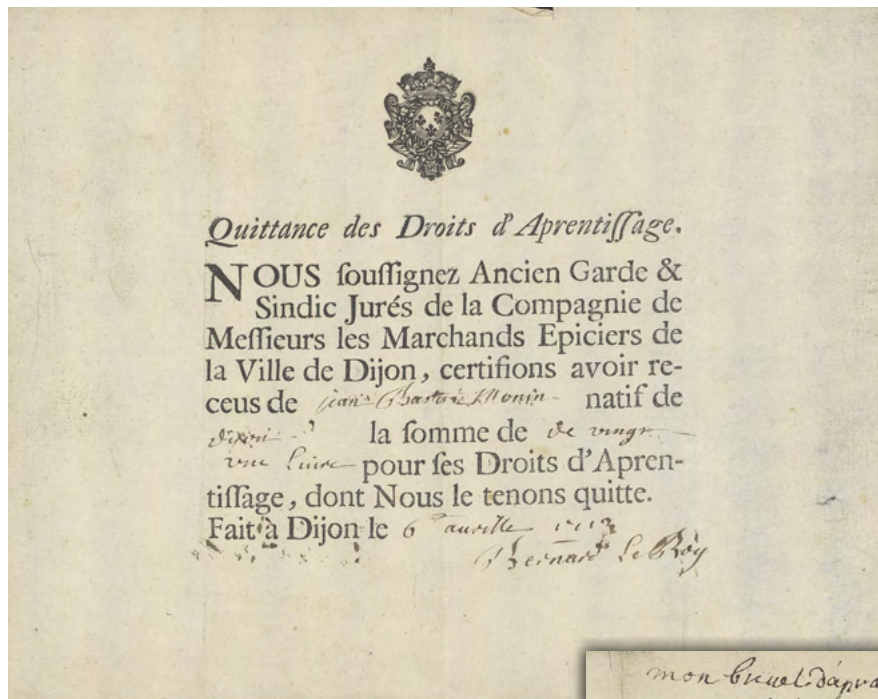 Quittance des Droits d'Aprentiſſage.
NOUS ſouſſignez Ancien Garde &
Sindic Jurés de la Compagnie de
Meſſieurs les Marchands Epiciers de
la Ville de Dijon, certifions avoir re-
ceus de jean Monin natif de
dijon la ſomme de de vingt
vne liure pour ſes Droits d'Apren-
tiſſage, dont Nous le tenons quitte.
Fait à Dijon le 6 aurille
Bernard Le Roy
mon